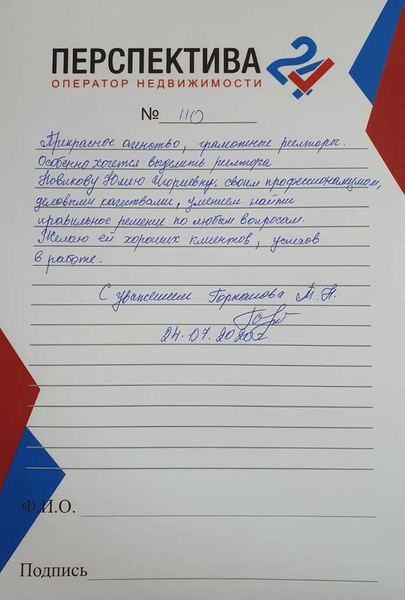 ПЕРСПЕКТИВА 24
ОПЕРАТОР НЕДВИЖИМОСТИ
№ 110
Прекрасное агенство, грамотные риелторы.
Особенно хочется выделить риелтора
Новикову Юлию Игоревну, своим профессионализмом,
деловыми качествами, умением найти
правильное решение по любым вопросам.
Желаю ей хороших клиентов, успехов
в работе.
С уважением М. Н.
24.07.2020г
Ф.И.О.
Подпись